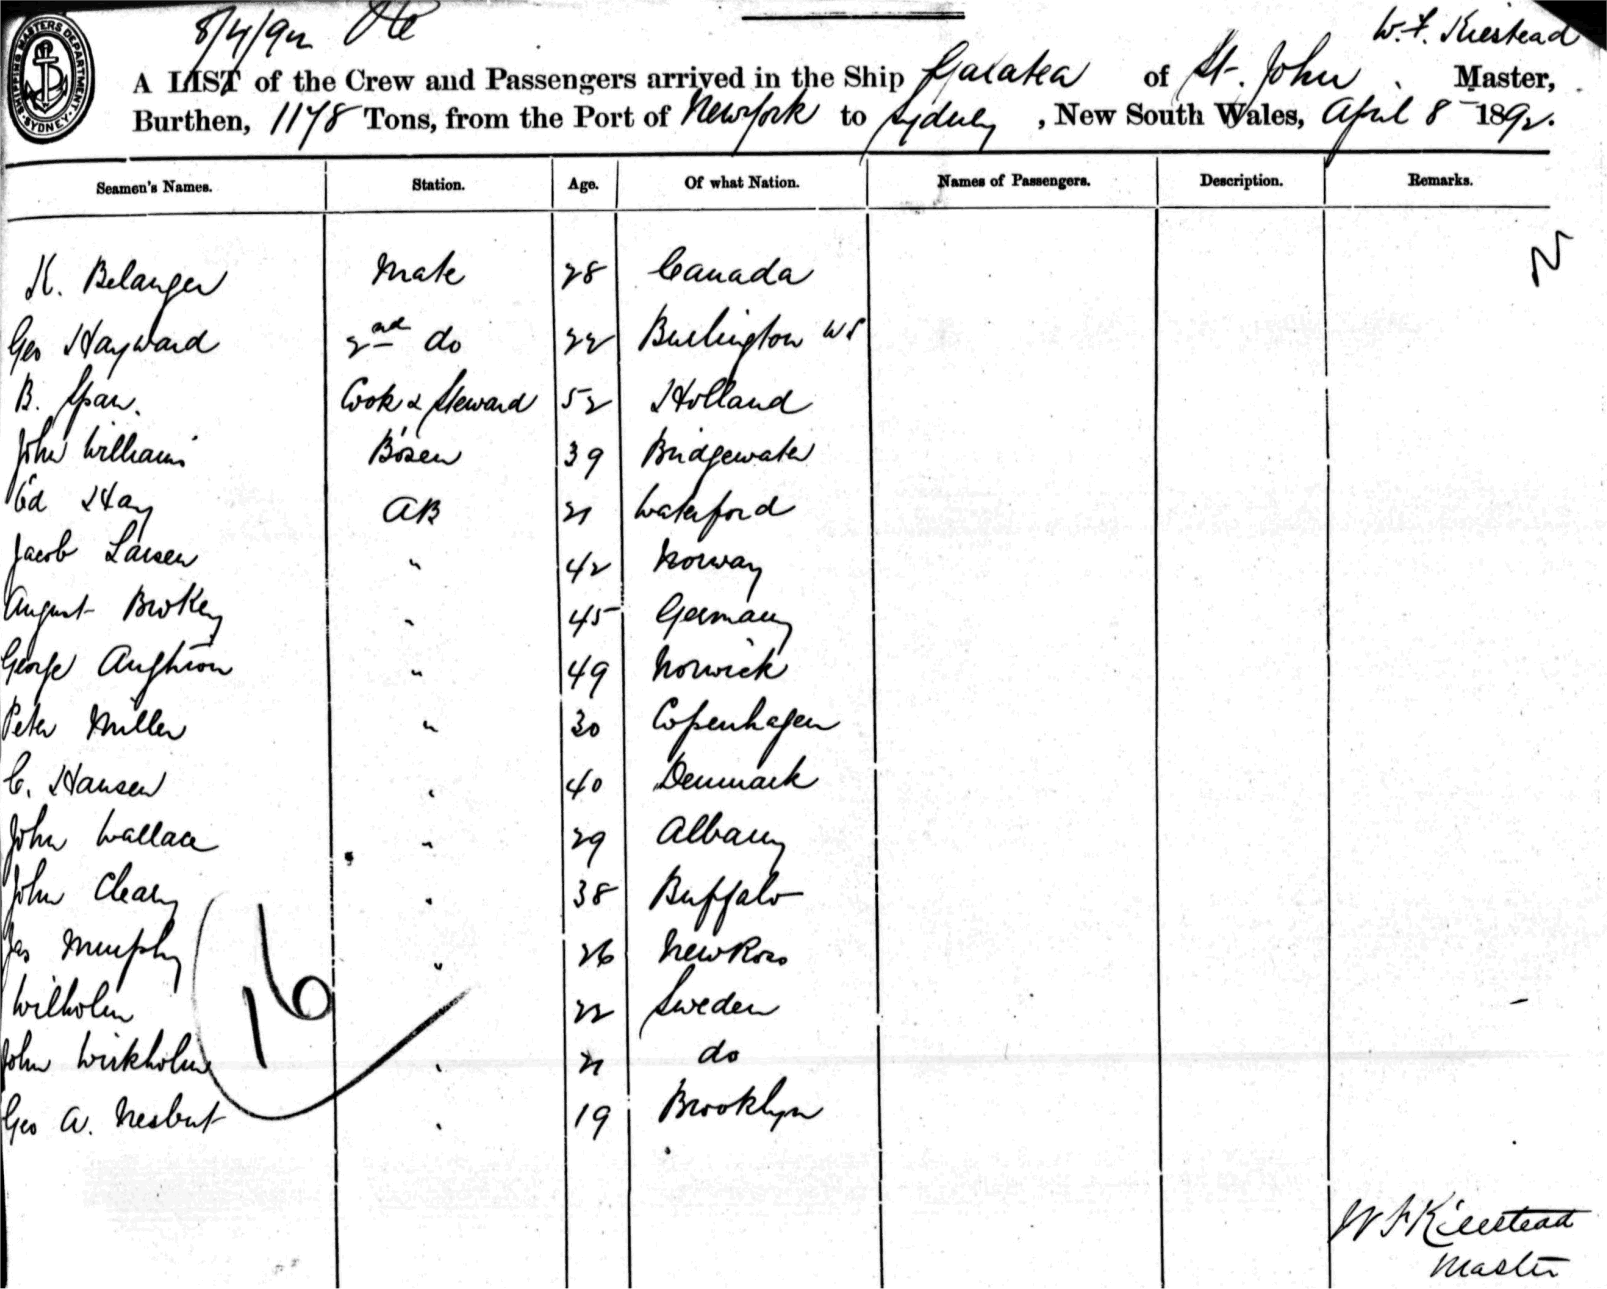 SHIPPING MASTERS DEPARTMENT SYDNEY
8/4/92
W. F. Kierstead
A LIST of the Crew and Passengers arrived in the Ship Galatea of St. John. Master,
Burthen, 1178 Tons, from the Port of New York to Sydney, New South Wales, April 8 1892.
Seamen's Names. Station. Age. Of what Nation. Names of Passengers. Description. Remarks.
K. Belanger Mate 28 Canada
Geo Hayward 2nd do 22 Burlington
B. Span. Cook & Steward 52 Holland
John Williams Bosen 39 Bridgewater
Ed Hay AB 21 Waterford
Jacob Larsen " 42 Norway
August Brokey " 45 Germany
George " 49 Norwick
Peter Miller " 30 Copenhagen
C. Hansen " 40 Denmark
John Wallace " 29 Albany
John Cleary " 38 Buffalo
Jas Murphy " 26 New Ross
Wilholm 22 Sweden
John Wirkholm " 21 do
Geo A. Nesbut " 19 Brooklyn
16
W F Kierstead
Master